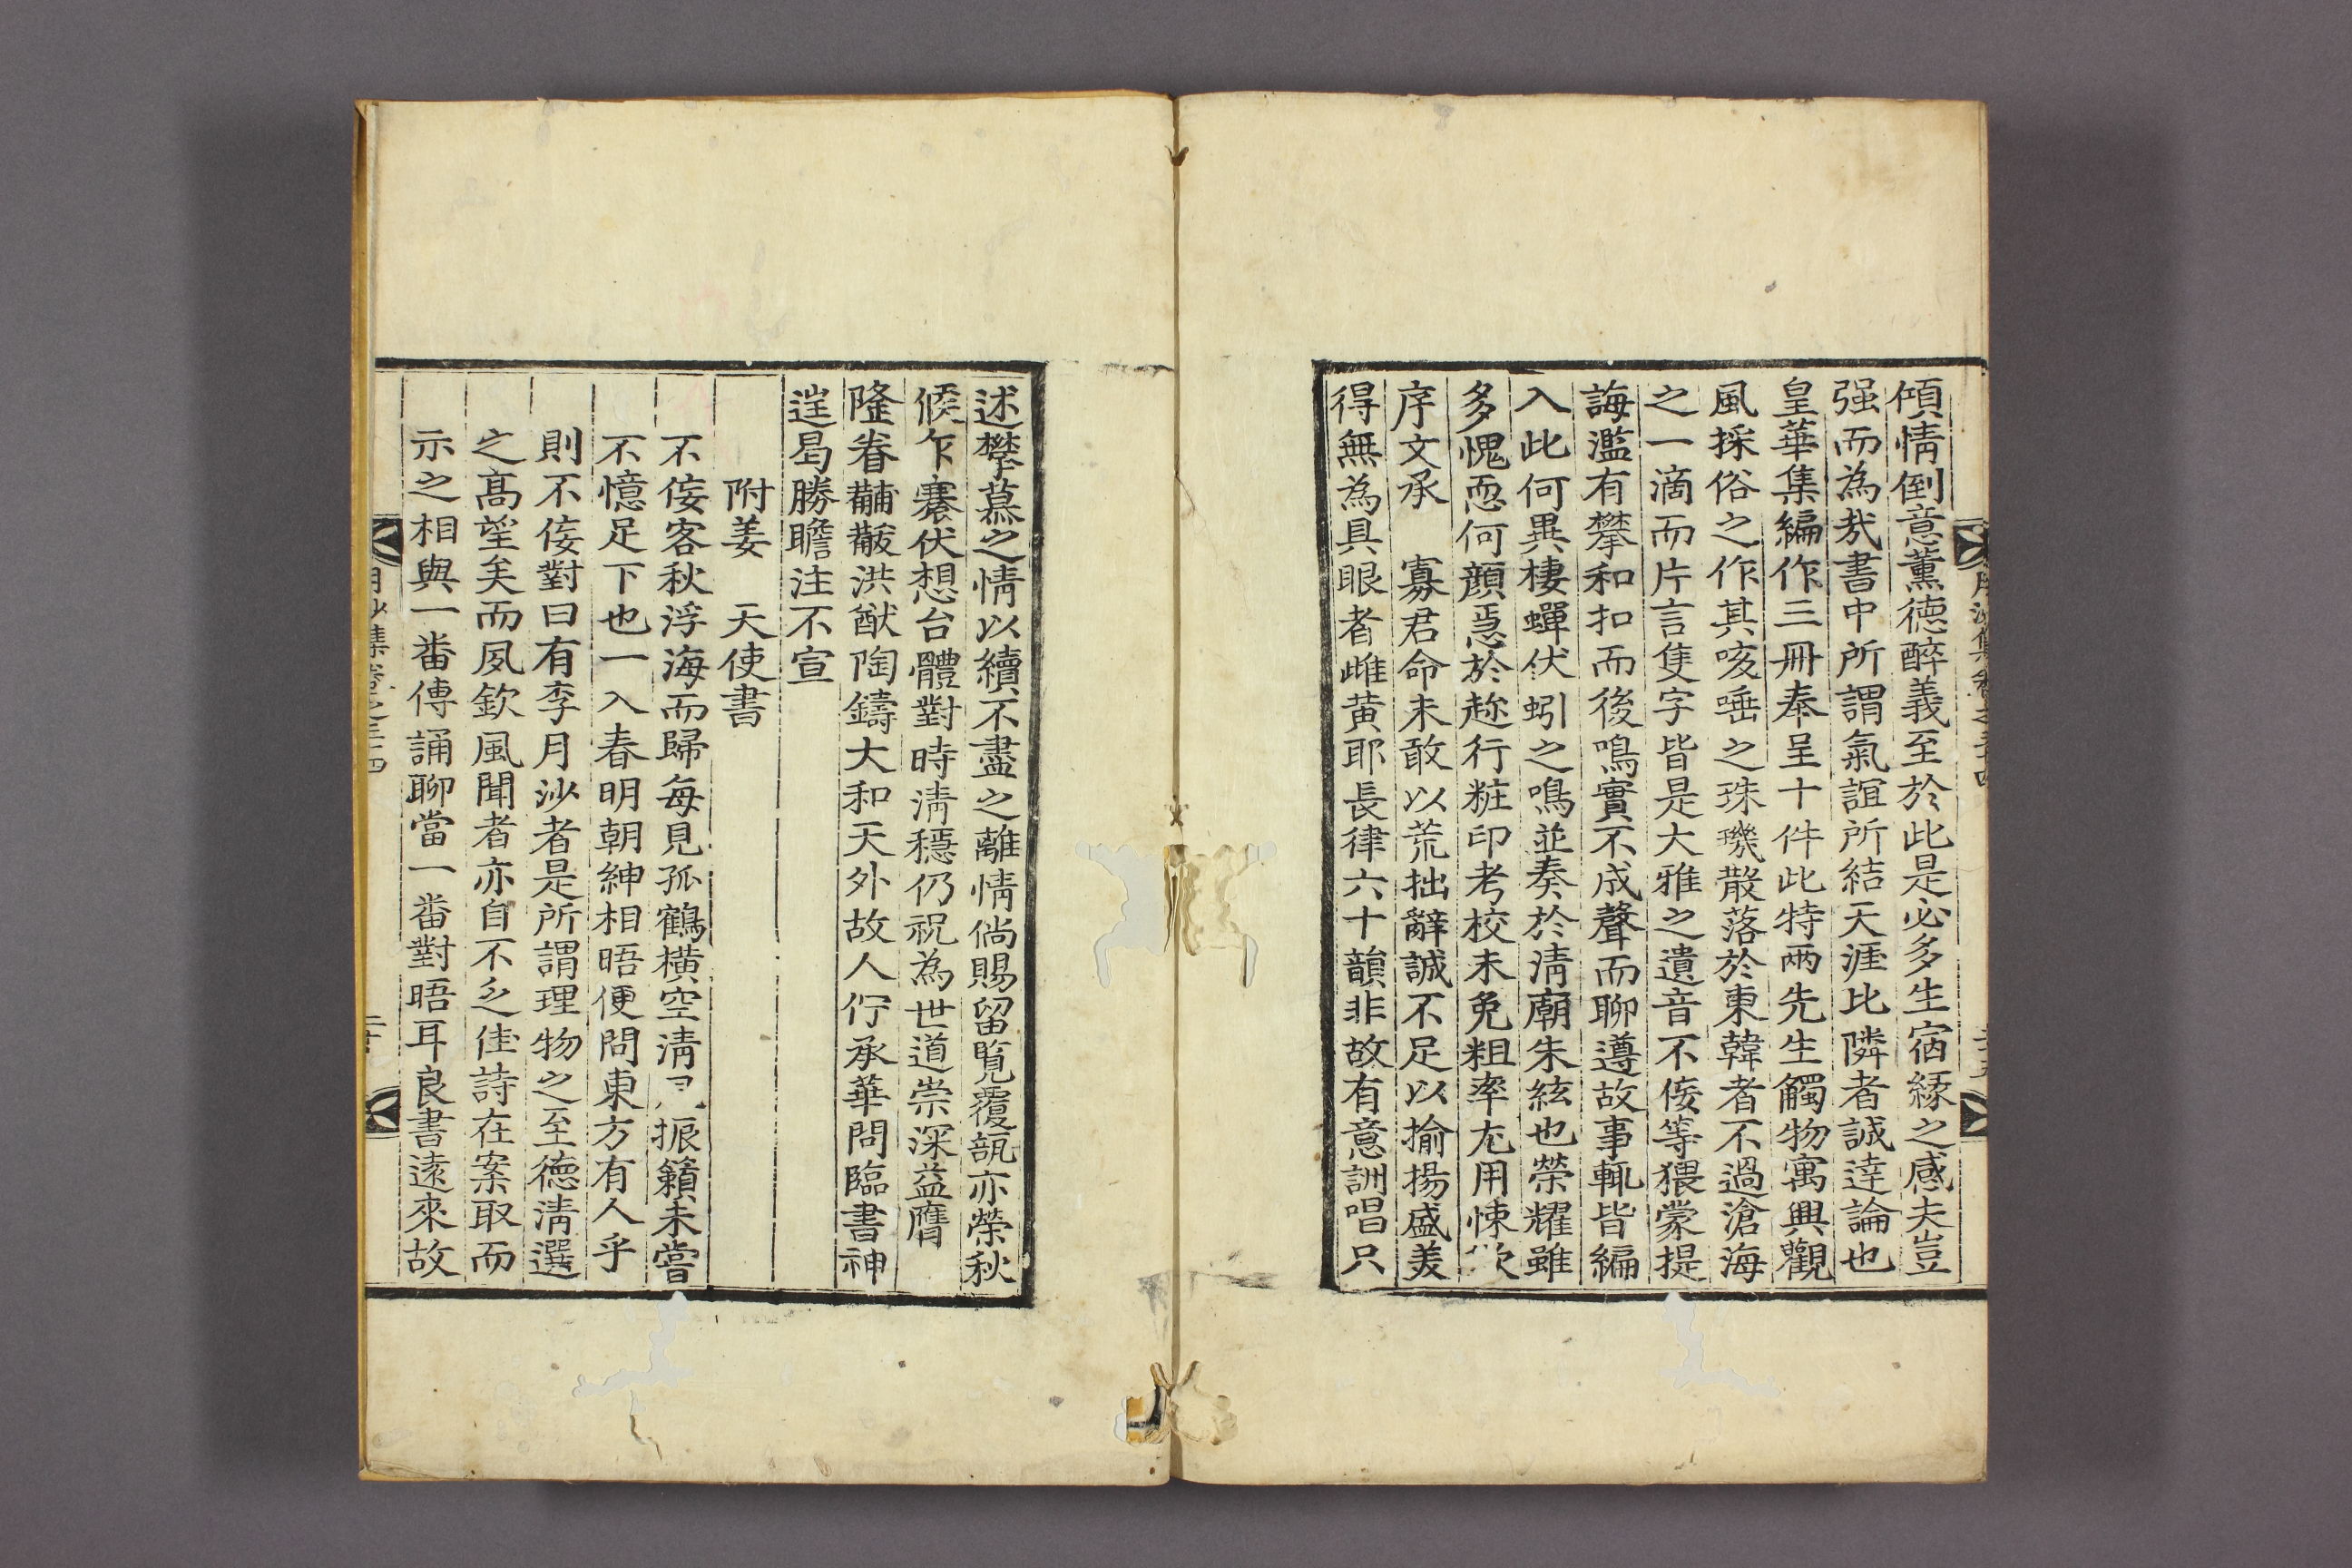 傾情倒意薰德醉義至於此是必多生宿緣之感夫豈
强而為㢤書中所謂氣誼所結天涯比隣者誠達論也
皇華集編作三冊奉呈十件此特兩先生觸物寓興觀
風採俗之作其咳唾之珠璣散落於東韓者不過滄海
之一滴而片言隻字皆是大雅之遺音不侫等猥蒙提
誨濫有攀和扣而後鳴實不成聲而聊遵故事輒皆編
入此何異棲蟬伏蚓之鳴並奏於淸廟朱絃也榮耀雖
多愧恧何顔忢於趂行粧印考校未免粗率尤用悚歎
序文承 寡君命未敢以荒拙辭誠不足以揄揚盛美
得無為具眼者雌黄耶長律六十韻非故有意詶唱只
述攀慕之情以續不盡之離情倘賜留覧覆瓿亦榮秋
候乍褰伏想台體對時淸穩仍祝為世道崇深益膺
隆眷黼黻洪猷陶鑄大和天外故人佇承華問臨書神
逞曷勝瞻注不宣
附姜 天使書
不侫客秋浮海而歸每見孤鶴橫空淸 振籟未嘗
不憶足下也一入春明朝紳相晤便問東方有人乎
則不侫對曰有李月沙者是所謂理物之至德淸選
之髙望矣而夙欽風聞者亦自不乏佳詩在案取而
示之相與一番傳誦聊當一番對晤耳良書遠來故
月沙集卷之三十四